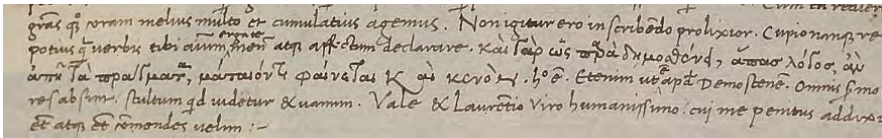 grãs, qđ coram melius multo et cumulatius agemus. Non igitur ero in scribendo prolixior. Cupio namque re
potius q̃ verbis tibi animum, mentẽ atque affectum declarare. Καὶ γὰρ ὡς παρὰ δημοσθένει, ἅπας λόγος, ἂν
ἀπῇ τὰ πράγματα, μάταιόν τι φαίνεται καὶ κενόν. hoc ẽ. Etenim ut apđ Demostenem. Omnis sermo
res absint. stultum quid videtur & vanum. Vale & Laurentio viro humanissimo. cui me penitus
et atque etẽ cõmendes velim :~